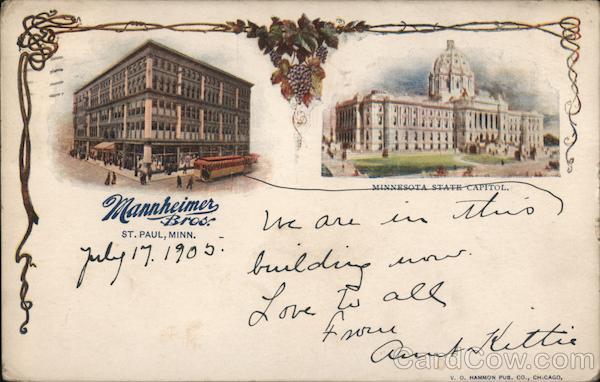 MINNESOTA STATE CAPITOL.
Mannheimer
Bros.
ST. PAUL, MINN.
July 17. 1905.
We are in this
building now.
Love to all
From
Aunt Kittie
CardCow.com
V. O. HAMMON PUB. CO., CHICAGO.